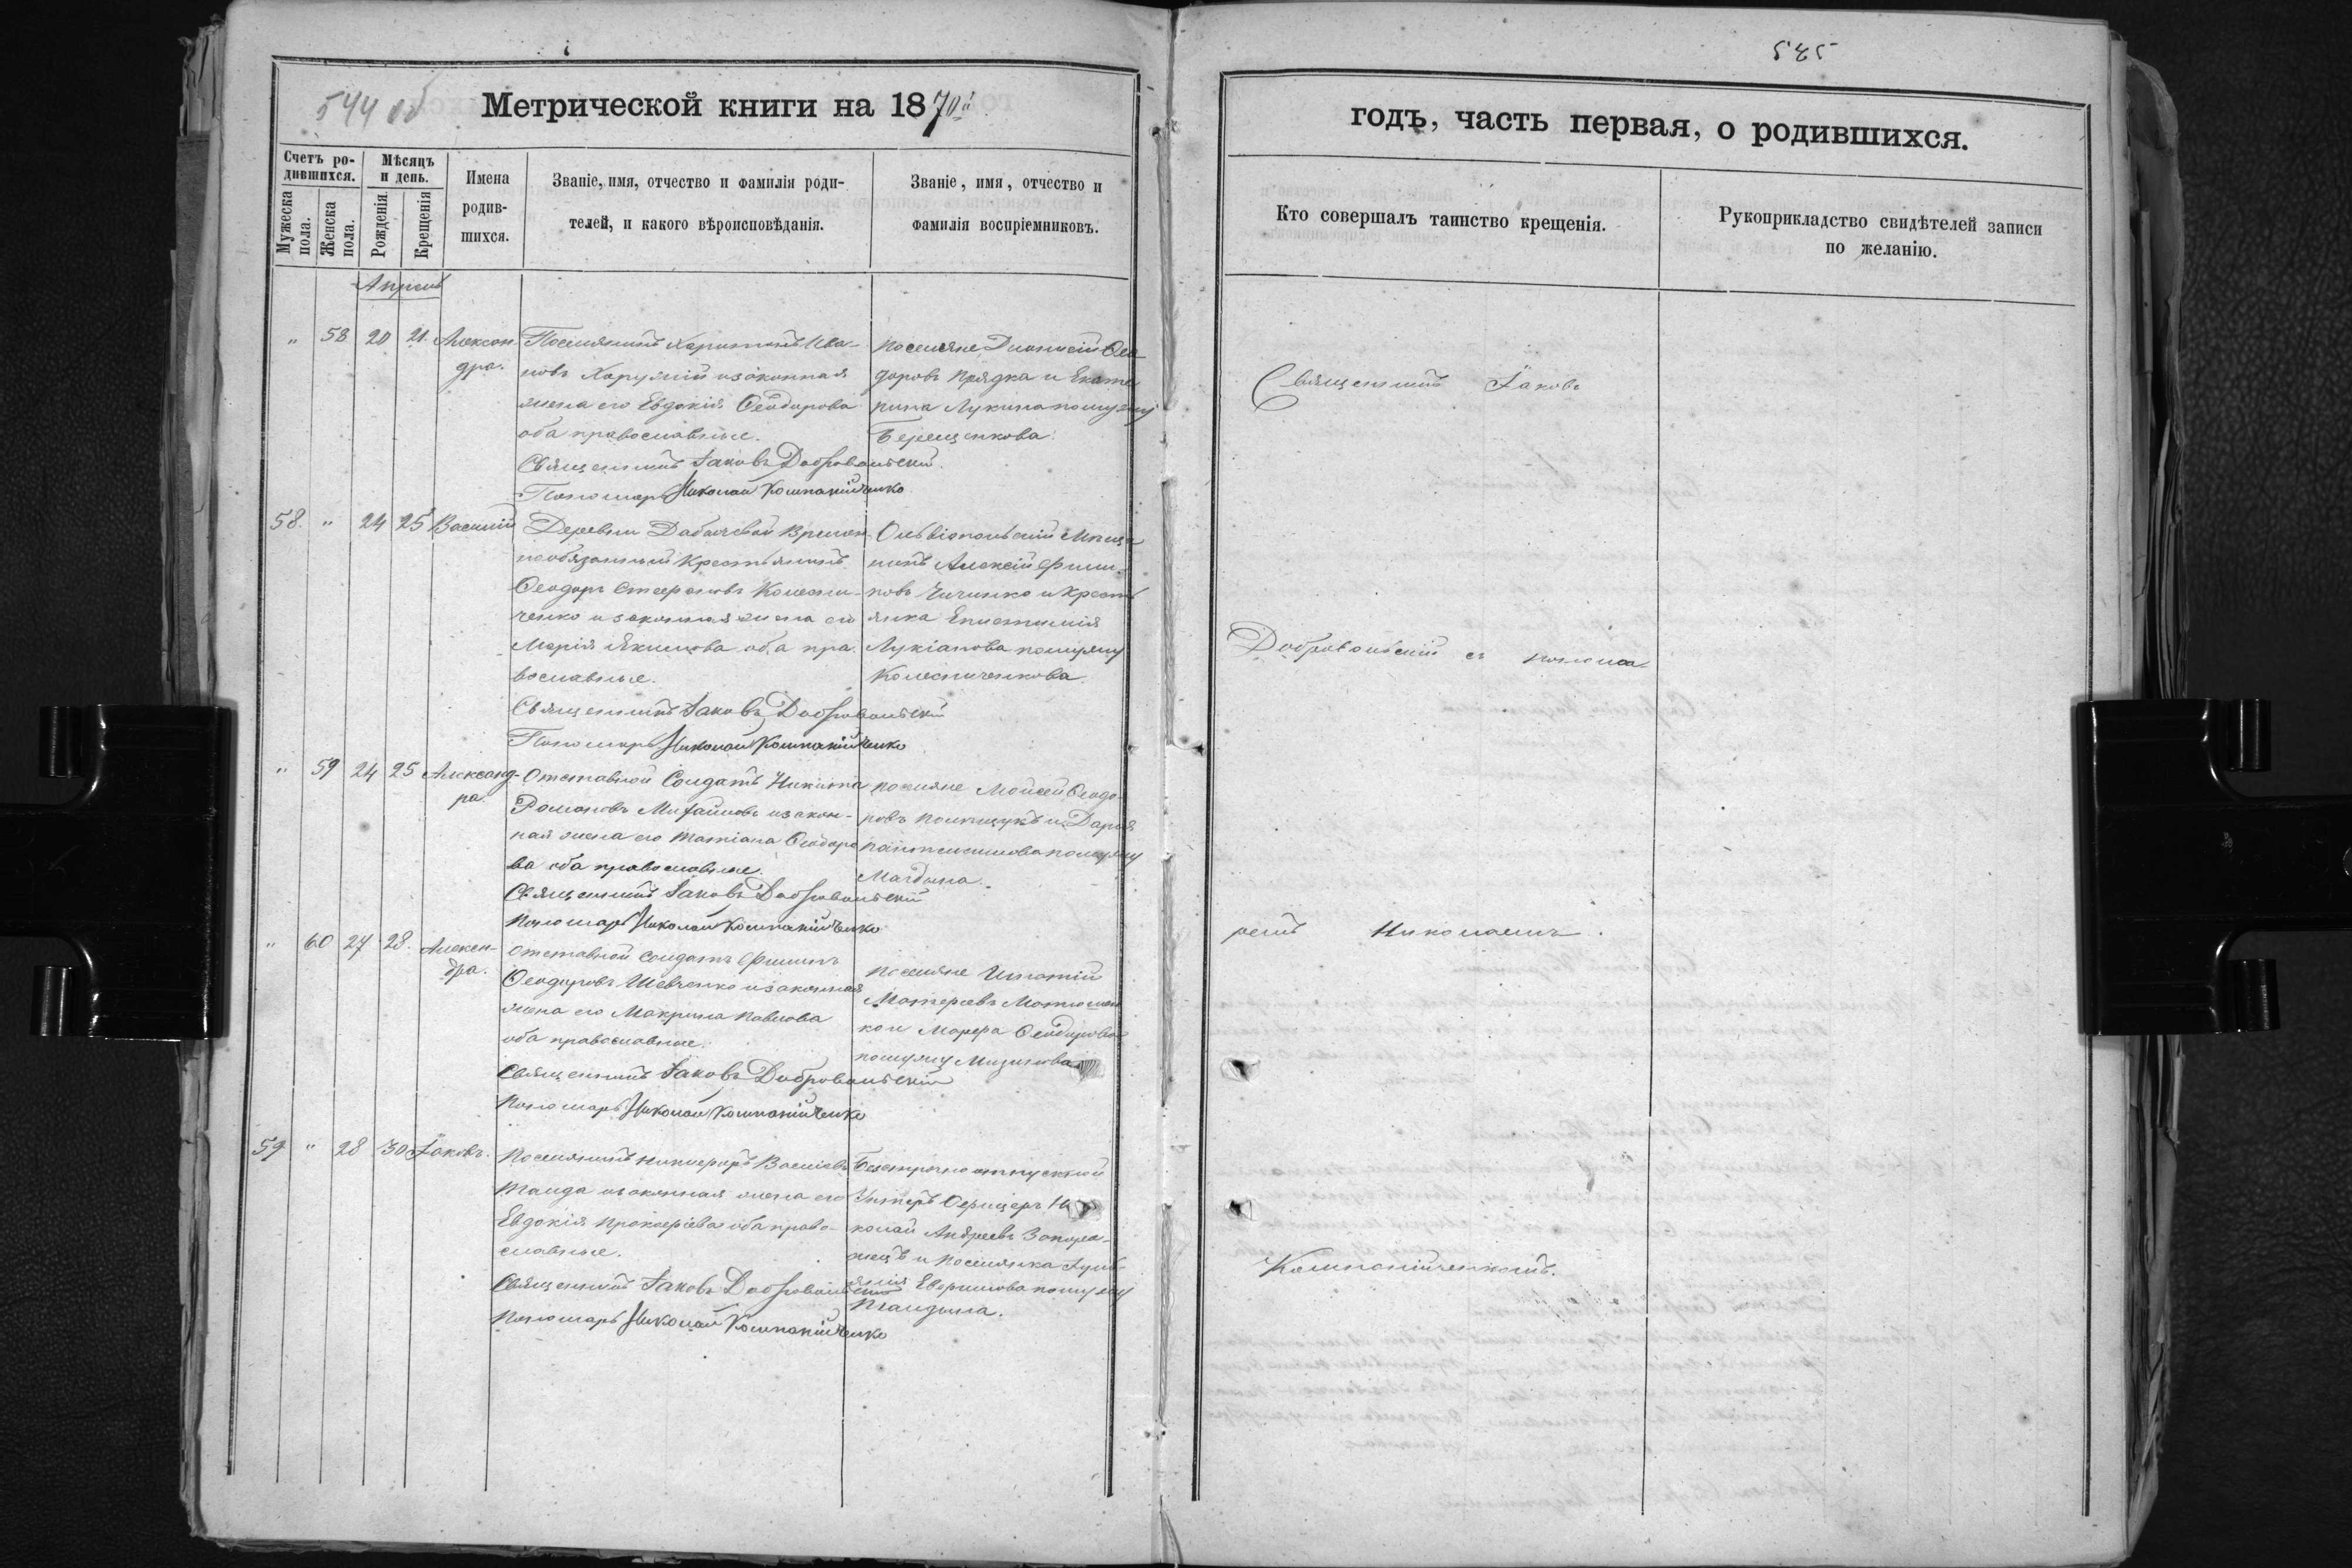 544 об
Метрической книги на 1870й
Счетъ родившихся.
Мужеска пола.
Женска пола.
Мѣсяцъ и день.
Рожденія.
Крещенія
Имена родившихся.
Званіе, имя, отчество и фамилія родителей, и какого вѣроисповѣданія.
Званіе, имя, отчество и фамилія воспріемниковъ.
Апрель
" 58 20 21 Александра.
Поселянинъ Харитонъ Ива-
новъ и законная
жена его Евдокія Ѳеодорова
оба православные.
Священникъ Іаковъ Добровольскій.
Пономарь Николай Компанійченко
поселяне Діонисій Ѳео-
доровъ Прядка и Екате
рина Лукина по мужу
Терещенкова.
58. " 24 25 Василій
Деревни Временно
необязанный Крестьянинъ
Ѳеодоръ Стефановъ Колесни-
ченко и законная жена его
Марія Якимова оба пра
вославные.
Священникъ Іаковъ Добровольскій
Пономарь Николай Компанійченко
Ольвіопольскій Мѣща
нинъ Алексій Филип-
повъ и Кресть
янка Епистимія
Лукіанова по мужу
Колесниченкова.
" 59 24 25 Александ-
ра.
Отставной Солдатъ Никита
Романовъ Михайловъ и закон-
ная жена его Татіана Ѳеодоро
ва оба православные.
Священникъ Іаковъ Добровольскій
Пономарь Николай Компанійченко
поселяне Моисей Ѳеодо-
ровъ Полищукъ и Дарья
Пантелимонова по мужу
" 60 27 28. Алексан-
дра.
Отставной солдатъ Филиппъ
Ѳеодоровъ Шевченко и законная
жена его Макрина Павлова
оба православные.
Священникъ Іаковъ Добровольскій
Пономарь Николай Компанійченко
поселяне Игнатій
Матѳеевъ Матюшен
ко и Марфа Ѳеодорова
по мужу
59 " 28 30 Іаковъ.
Поселянинъ Никифоръ Васіліевъ
и законная жена его
Евдокія Прокофіева оба право-
славные.
Священникъ Іаковъ Добровольскій
Пономарь Николай Компанійченко
Безсрочно отпускной
Унтеръ Офицеръ Ни
колай Андреевъ Запоро-
жецъ и поселянка Іулі-
янія Евфимова по мужу
585
годъ, часть первая, о родившихся.
Кто совершалъ таинство крещенія.
Рукоприкладство свидѣтелей записи по желанію.
Священникъ Іаковъ
Добровольскій съ понома-
ремъ Николаемъ
Компанійченкомъ.